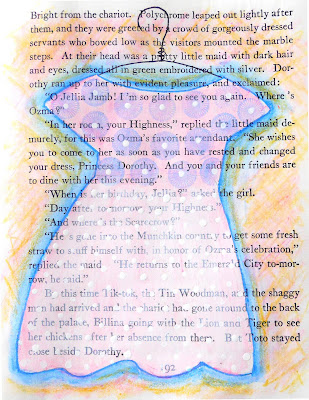 Bright from the chariot. Polychrome leaped out lightly after
them, and they were greeted by a crowd of gorgeously dressed
servants who bowed low as the visitors mounted the marble
steps. At their head was a pretty little maid with dark hair
and eyes, dressed all in green embroidered with silver. Dor-
othy ran up to her with evident pleasure, and exclaimed:
"O Jellia Jamb! I'm so glad to see you again. Where's
Ozma?"
"In her room, your Highness," replied the little maid de-
murely, for this was Ozma's favorite attendant. "She wishes
you to come to her as soon as you have rested and changed
your dress, Princess Dorothy. And you and your friends are
to dine with her this evening."
"When is her birthday, Jellia?" asked the girl.
"Day after to-morrow, your Highness."
"And where's the Scarecrow?"
"He's gone into the Munchkin country to get some fresh
straw to stuff himself with, in honor of Ozma's celebration,"
replied the maid. "He returns to the Emerald City to-mor-
row, he said."
By this time Tik-tok, the Tin Woodman, and the shaggy
man had arrived and the chariot had gone around to the back
of the palace, Billina going with the Lion and Tiger to see
her chickens after her absence from them. But Toto stayed
close beside Dorothy.
92